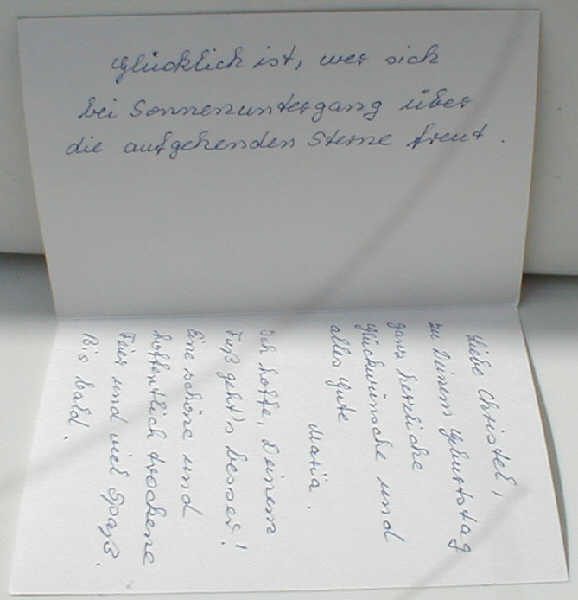 Glücklich ist, wer sich
bei Sonnenuntergang über
die aufgehenden Sterne freut.
Liebe Christel,
zu Deinem Geburtstag
ganz herzliche
Glückwünsche und
alles Gute
Maria.
Ich hoffe, Deinem
Fuß geht's besser!
Eine schöne und
hoffentlich trockene
Feier und viel Spaß.
Bis bald.